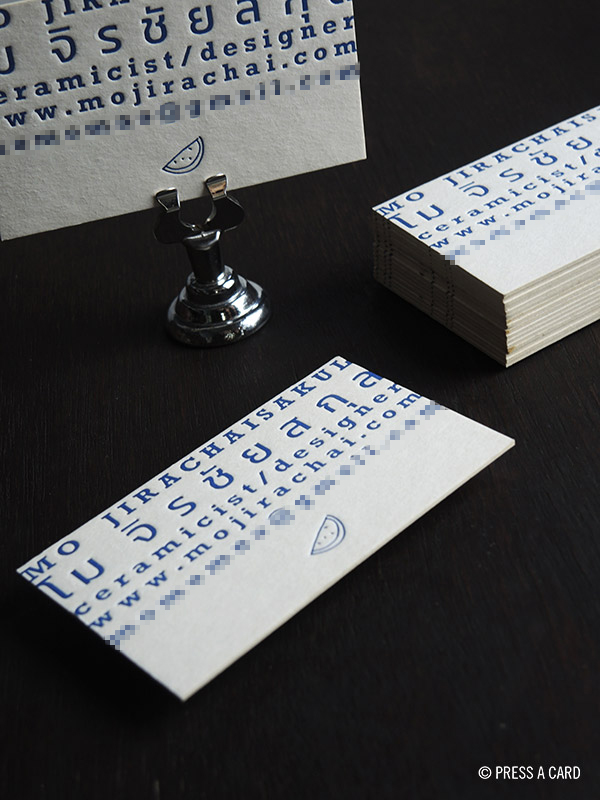 MO JIRA
ม จิรชัยสกุ
eramicist/designer
www.mojirachai.com
@gmail.com
MO JIRACHAIS
โม จิรชัย
ceramicist/d
www.mojira
MO JIRACHAISAKUL
โม จิรชัยสกุล
ceramicist/designer
www.mojirachai.com
@gmail.com
© PRESS A CARD